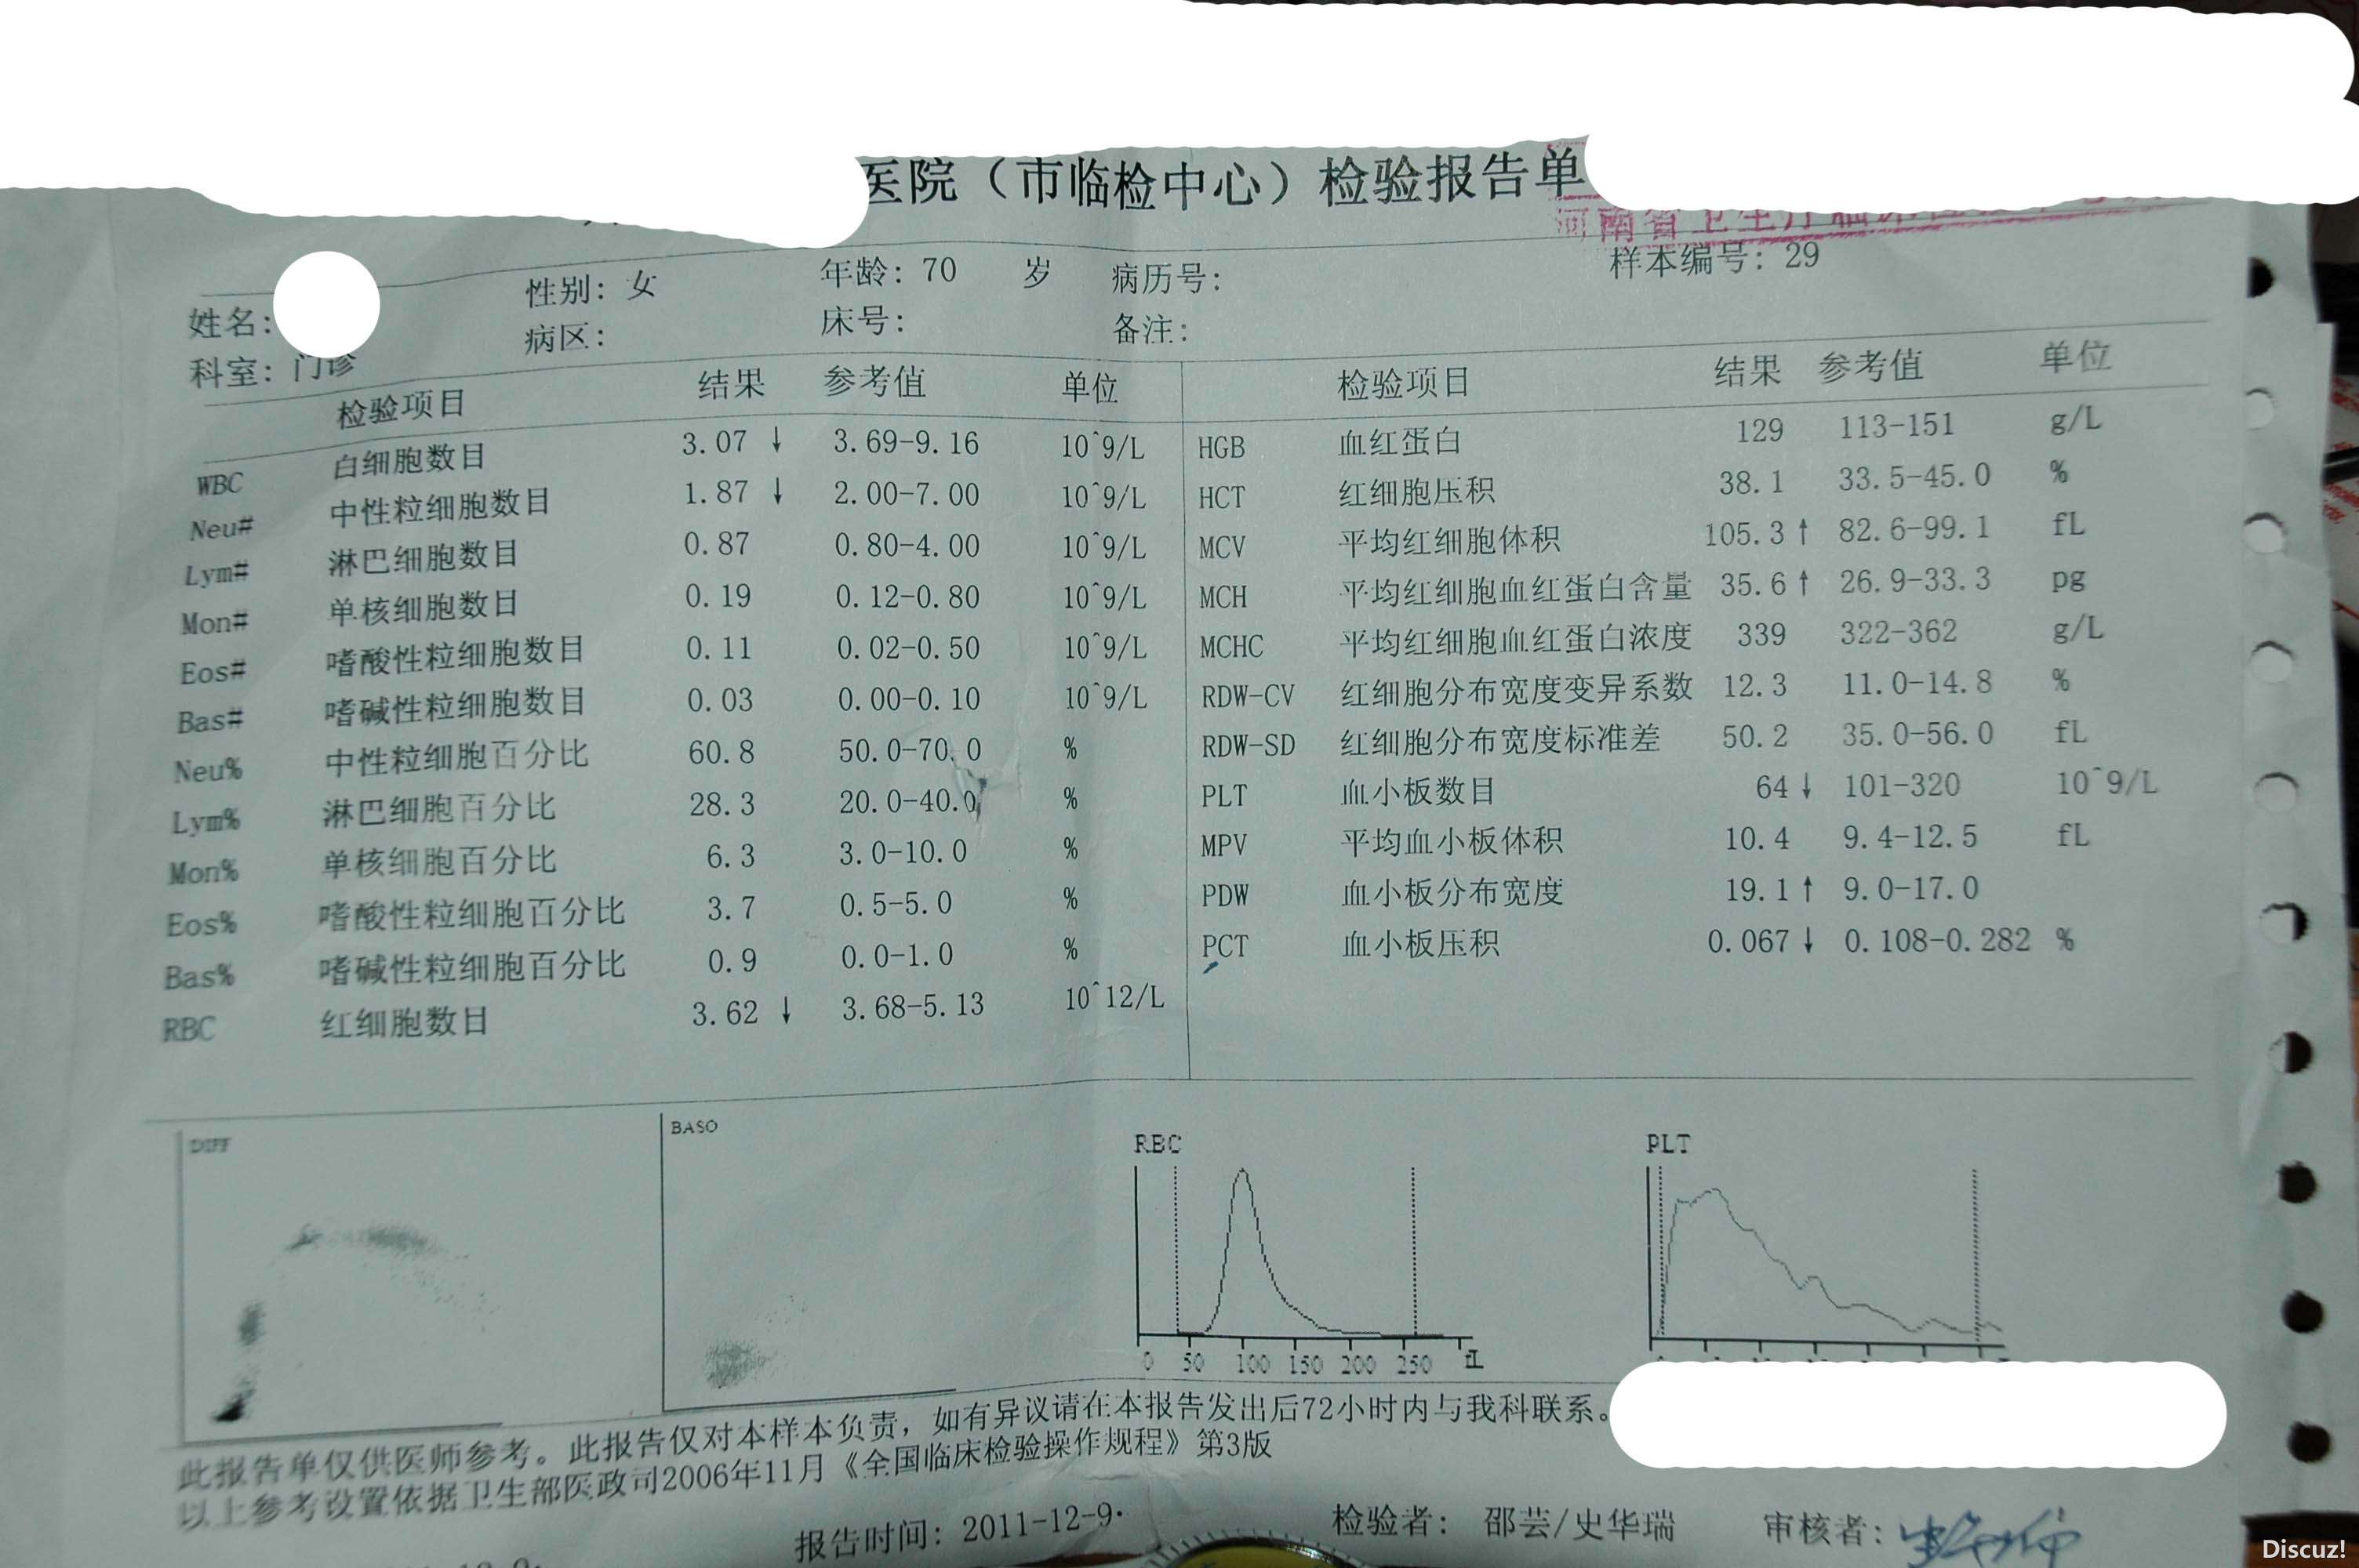 医院（市临检中心）检验报告单
河南省卫生厅临床
姓名： 性别：女 年龄：70 岁 病历号： 样本编号：29
科室：门诊 病区： 床号： 备注：
检验项目 结果 参考值 单位 检验项目 结果 参考值 单位
WBC 白细胞数目 3.07 ↓ 3.69-9.16 10^9/L HGB 血红蛋白 129 113-151 g/L
Neu# 中性粒细胞数目 1.87 ↓ 2.00-7.00 10^9/L HCT 红细胞压积 38.1 33.5-45.0 %
Lym# 淋巴细胞数目 0.87 0.80-4.00 10^9/L MCV 平均红细胞体积 105.3 ↑ 82.6-99.1 fL
Mon# 单核细胞数目 0.19 0.12-0.80 10^9/L MCH 平均红细胞血红蛋白含量 35.6 ↑ 26.9-33.3 pg
Eos# 嗜酸性粒细胞数目 0.11 0.02-0.50 10^9/L MCHC 平均红细胞血红蛋白浓度 339 322-362 g/L
Bas# 嗜碱性粒细胞数目 0.03 0.00-0.10 10^9/L RDW-CV 红细胞分布宽度变异系数 12.3 11.0-14.8 %
Neu% 中性粒细胞百分比 60.8 50.0-70.0 % RDW-SD 红细胞分布宽度标准差 50.2 35.0-56.0 fL
Lym% 淋巴细胞百分比 28.3 20.0-40.0 % PLT 血小板数目 64 ↓ 101-320 10^9/L
Mon% 单核细胞百分比 6.3 3.0-10.0 % MPV 平均血小板体积 10.4 9.4-12.5 fL
Eos% 嗜酸性粒细胞百分比 3.7 0.5-5.0 % PDW 血小板分布宽度 19.1 ↑ 9.0-17.0
Bas% 嗜碱性粒细胞百分比 0.9 0.0-1.0 % PCT 血小板压积 0.067 ↓ 0.108-0.282 %
RBC 红细胞数目 3.62 ↓ 3.68-5.13 10^12/L
DIFF BASO RBC PLT
0 50 100 150 200 250 fL
此报告单仅供医师参考。此报告仅对本样本负责，如有异议请在本报告发出后72小时内与我科联系。
以上参考设置依据卫生部医政司2006年11月《全国临床检验操作规程》第3版
报告时间：2011-12-9 检验者：邵芸/史华瑞 审核者：
Discuz!